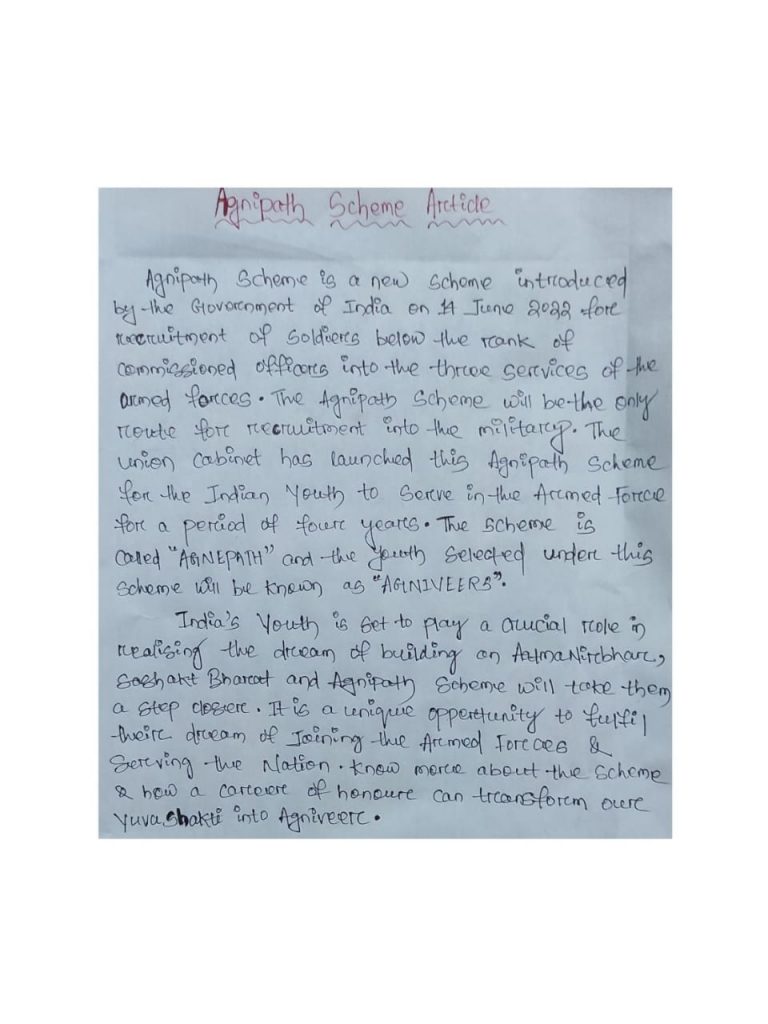 Agnipath Scheme Article
Agnipath Scheme is a new scheme introduced
by the Government of India on 14 June 2022 for
recruitment of soldiers below the rank of
commissioned officers into the three services of the
armed forces. The Agnipath Scheme will be the only
route for recruitment into the military. The
union cabinet has launched this Agnipath Scheme
for the Indian Youth to Serve in the Armed Force
for a period of four years. The scheme is
called "AGNEPATH" and the youth selected under this
scheme will be known as "AGINIVEERS".
India's Youth is set to play a crucial role in
realising the dream of building an AatmaNirbhar,
Sashakt Bharat and Agnipath Scheme will take them
a step closer. It is a unique opportunity to fulfil
their dream of Joining the Armed Forces &
Serving the Nation. Know more about the Scheme
& how a career of honour can transform our
Yuva Shakti into Agniveer.